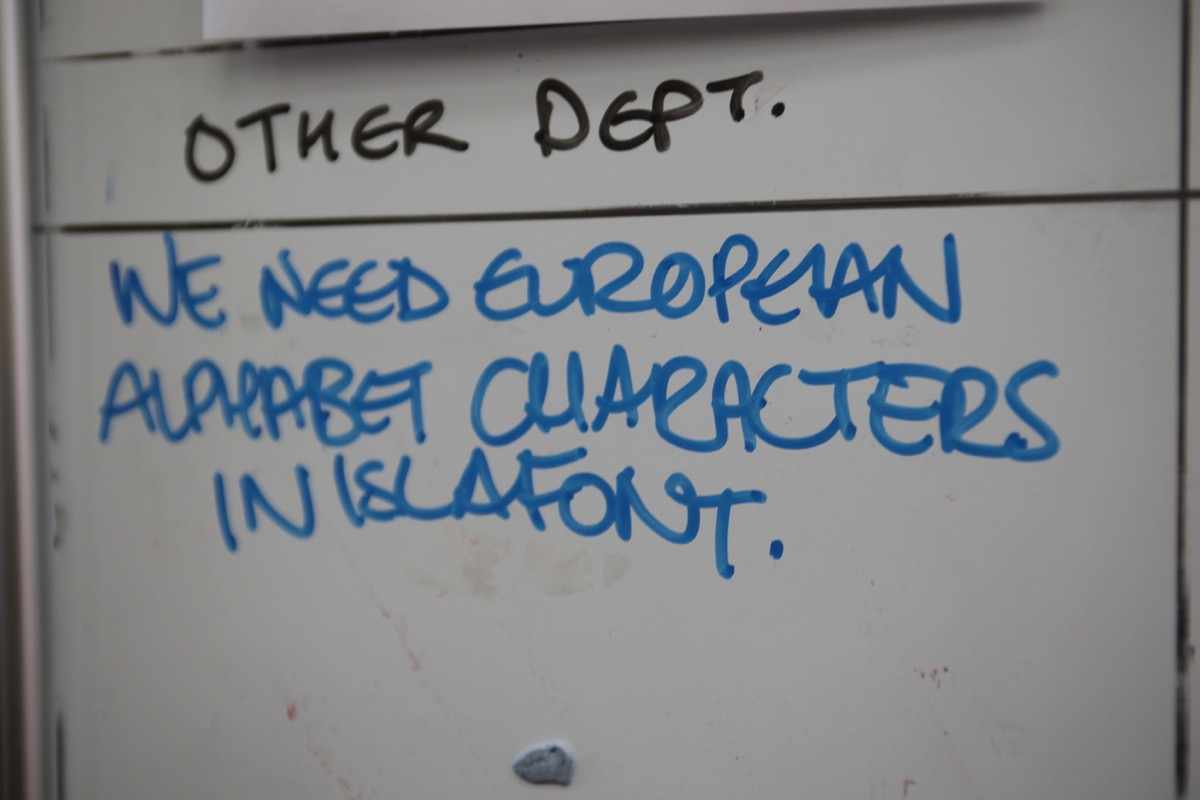 OTHER DEPT.
WE NEED EUROPEAN
ALPHABET CHARACTERS
IN ISLAFONT.